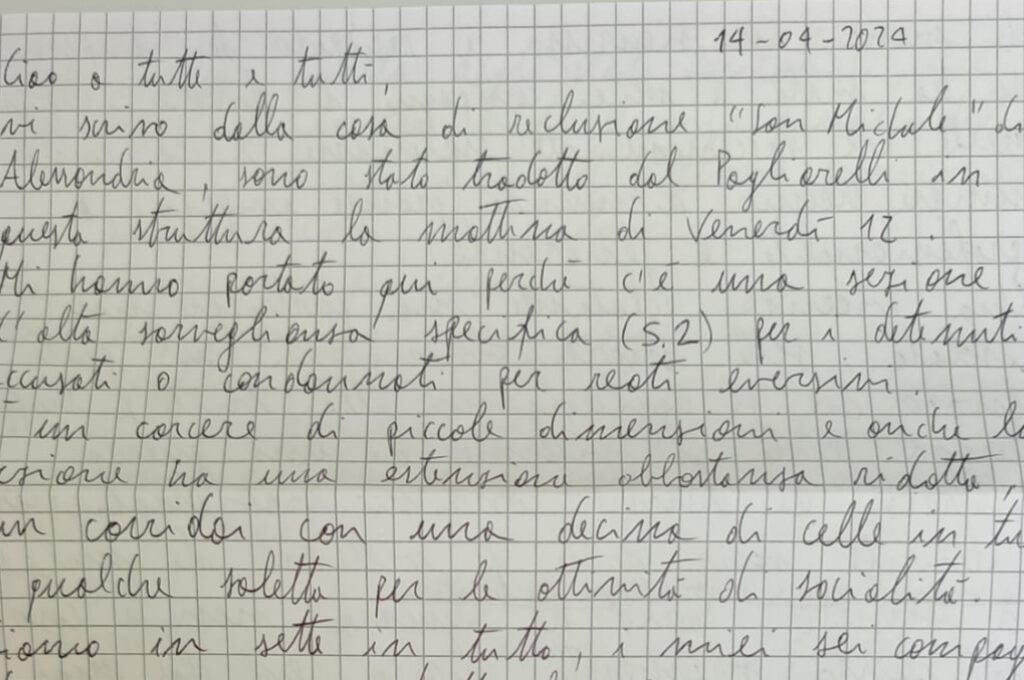 14-04-2024
Ciao a tutte e tutti,
vi scrivo dalla casa di reclusione "San Michele" di
Alessandria, sono stato tradotto dal Pagliarelli in
questa struttura la mattina di Venerdì 12.
Mi hanno portato qui perché c'è una sezione
alta sorveglianza specifica (S.2) per i detenuti
ccusati o condannati per reati eversivi.
un carcere di piccole dimensioni e anche la
ezione ha una estensione abbastanza ridotta,
un corridoi con una decina di celle in tu
qualche saletta per le attività di socialità.
iamo in sette in tutto, i miei sei compag